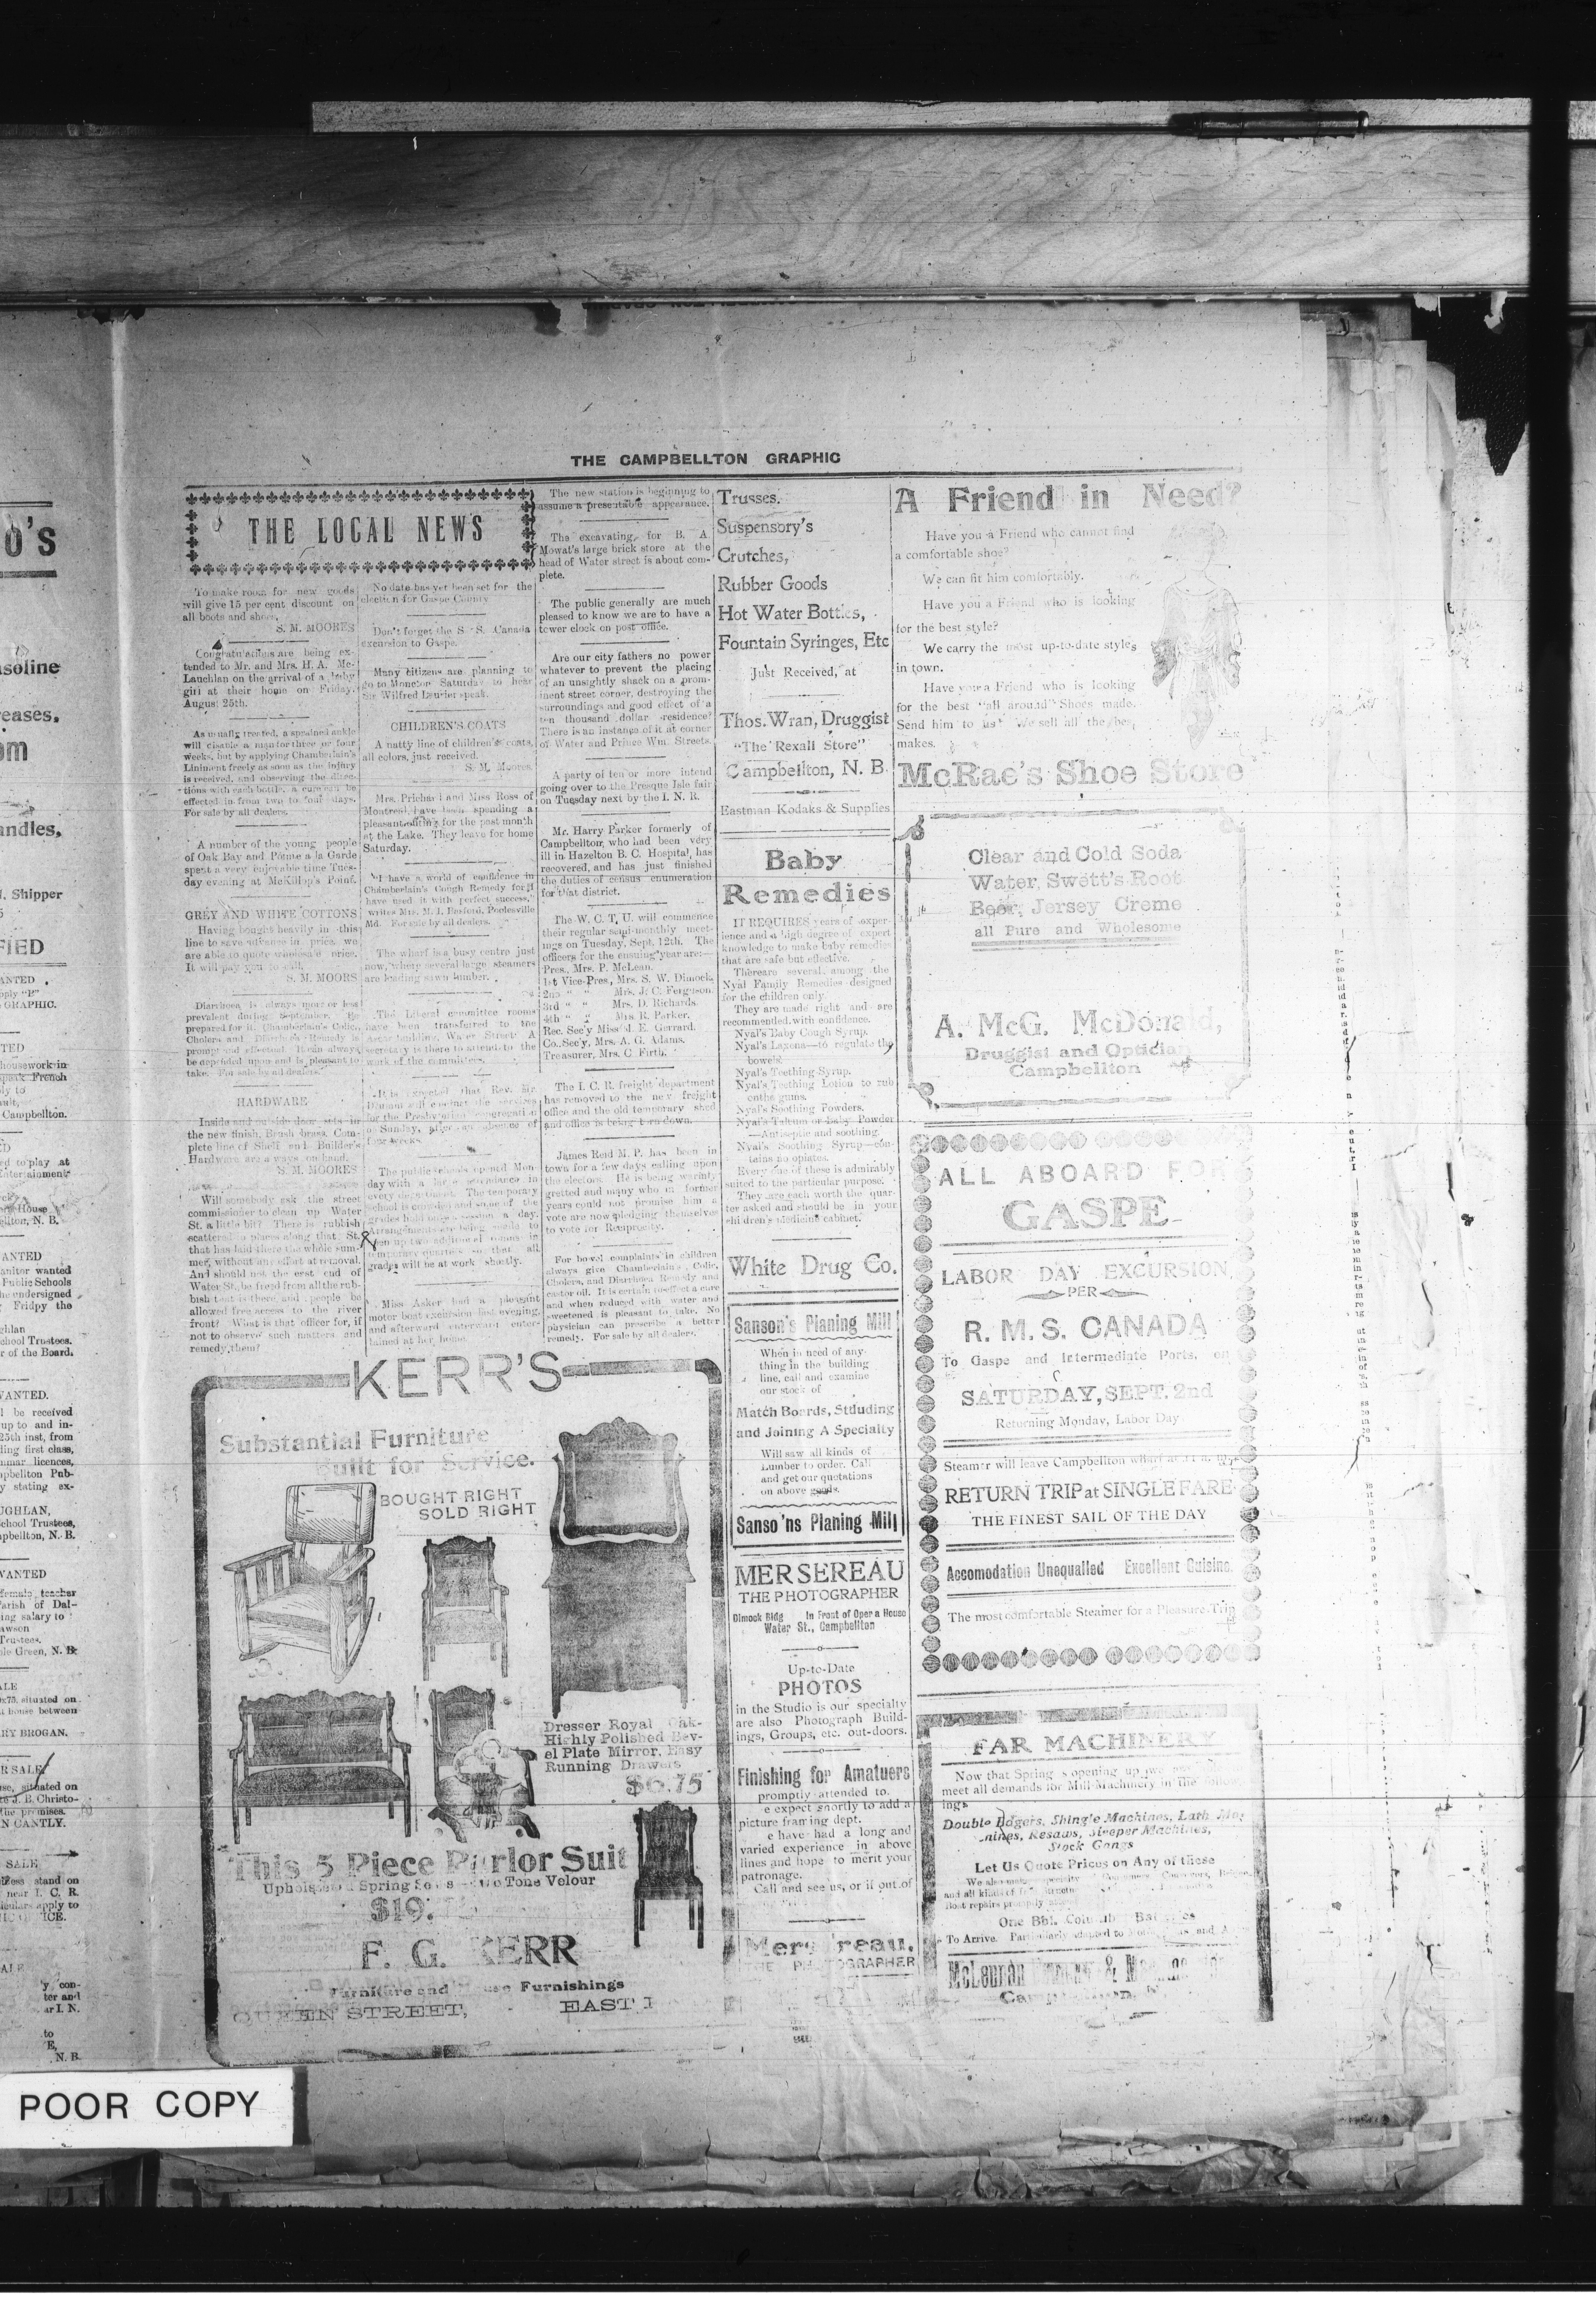 THE CAMPBELLTON GRAPHIC
THE LOCAL NEWS
To make room for new goods
will give 15 per cent discount on
all boots and shoes,
S. M. MOORES
Congratulations are being ex-
tended to Mr. and Mrs. H. A. Mc-
Lauchlan on the arrival of a baby
girl at their home on Friday,
August 25th.
As usually treated, a sprained ankle
will disable a man for three or four
weeks, but by applying Chamberlain's
Liniment freely as soon as the injury
is received, and observing the direc-
tions with each bottle, a cure can be
effected in from two to four days.
For sale by all dealers.
A number of the young people
of Oak Bay and Pointe a la Garde
spent a very enjoyable time Tues-
day evening at McKillop's Point.
GREY AND WHITE COTTONS
Having bought heavily in this
line to save advance in price, we
are able to quote wholesale price.
It will pay you to call.
S. M. MOORS
Diarrhoea is always more or less
prevalent during September. Be
prepared for it. Chamberlain's Colic,
Cholera and Diarrhoea Remedy is
prompt and effectual. It can always
be depended upon and is pleasant to
take. For sale by all dealers.
HARDWARE
Inside and outside door sets in
the new finish, Brush brass. Com-
plete line of Shelf and Builder's
Hardware are always on hand.
S. M. MOORES
Will somebody ask the street
commissioner to clean up Water
St. a little bit? There is rubbish
scattered in places along that St.
that has laid there the whole sum-
mer, without any effort at removal.
And should not the east end of
Water St. be freed from all the rub-
bish that is there, and people be
allowed free access to the river
front? What is that officer for, if
not to observe such matters and
remedy them?
No date has yet been set for the
election for Gaspe County
Don't forget the S. S. Canada
excursion to Gaspe.
Many citizens are planning to
go to Moncton Saturday to hear
Sir Wilfred Laurier speak.
CHILDREN'S COATS
A natty line of children's coats,
all colors, just received.
S. M. Moores
Mrs. Prichard and Miss Ross of
Montreal, have been spending a
pleasant outing for the past month
at the Lake. They leave for home
Saturday.
"I have a world of confidence in
Chamberlain's Cough Remedy for I
have used it with perfect success,"
writes Mrs. M. I. Basford, Poolesville
Md. For sale by all dealers.
The wharf is a busy centre just
now, where several large steamers
are loading sawn lumber.
The Liberal committee rooms
have been transferred to the
building, Water Street. A
secretary is there to attend to the
work of the committees.
It is expected that Rev. Mr.
will conduct the services
for the Presbyterian congregation
on Sunday, after an absence of
four weeks.
The public schools opened Mon
day with a large attendance in
every department. The temporary
school is crowded and some of the
grades hold one session a day.
Arrangements are being made to
open up two additional rooms in
temporary quarters so that all
grades will be at work shortly.
Miss Asker had a pleasant
motor boat excursion last evening,
and afterward entertained enter-
tained at her home.
The new station is beginning to
assume a presentable appearance.
The excavating for B. A.
Mowat's large brick store at the
head of Water street is about com-
plete.
The public generally are much
pleased to know we are to have a
tower clock on post office.
Are our city fathers no power
whatever to prevent the placing
of an unsightly shack on a prom-
inent street corner, destroying the
surroundings and good effect of a
ten thousand dollar residence?
There is an instance of it at corner
of Water and Prince Wm. Streets.
A party of ten or more intend
going over to the Presque Isle fair
on Tuesday next by the I. N. R.
Mr. Harry Parker formerly of
Campbellton, who had been very
ill in Hazelton B. C. Hospital, has
recovered, and has just finished
the duties of census enumeration
for that district.
The W. C. T. U. will commence
their regular semi-monthly meet-
ings on Tuesday, Sept, 12th. The
officers for the ensuing year are:—
Pres., Mrs. P. McLean.
1st Vice-Pres, Mrs. S. W. Dimock.
2nd " " Mrs. J. C. Ferguson.
3rd " " Mrs. D. Richards.
4th " " Mrs R. Parker.
Rec. Sec'y Miss J. E. Gerrard.
Co. Sec'y, Mrs. A. G. Adams.
Treasurer, Mrs. C. Firth.
The I. C. R. freight department
has removed to the new freight
office and the old temporary shed
and office is being torn down.
James Reid M. P. has been in
town for a few days calling upon
the electors. He is being warmly
gretted and many who in former
years could not promise him a
vote are now pledging themselves
to vote for Reciprocity.
For bowel complaints in children
always give Chamberlain's Colic,
Cholera, and Diarrhoea Remedy and
castor oil. It is certain to effect a cure
and when reduced with water and
sweetened is pleasant to take. No
physician can prescribe a better
remedy. For sale by all dealers.
KERR'S
Substantial Furniture
Built for Service.
BOUGHT RIGHT
SOLD RIGHT
Dresser Royal Oak-
Highly Polished Bev-
el Plate Mirror, Easy
Running Drawers
$6.75
This 5 Piece Parlor Suit
Two Tone Velour
$19.
F. G. KERR
Furniture and House Furnishings
QUEEN STREET,
EAST
Trusses.
Suspensory's
Crutches,
Rubber Goods
Hot Water Bottles,
Fountain Syringes, Etc
Just Received, at
Thos. Wran, Druggist
"The Rexall Store"
Campbellton, N. B.
Eastman Kodaks & Supplies
Baby
Remedies
IT REQUIRES years of exper-
ience and a high degree of expert
knowledge to make baby remedies
that are safe but effective.
There are several among the
Nyal Family Remedies designed
for the children only.
They are made right and are
recommended with confidence.
Nyal's Baby Cough Syrup.
Nyal's Laxona—to regulate the
bowels.
Nyal's Teething Syrup.
Nyal's Teething Lotion to rub
on the gums.
Nyal's Soothing Powders.
Nyal's Talcum or Baby Powder
—Antiseptic and soothing.
Nyal's Soothing Syrup—con-
tains no opiates.
Every one of these is admirably
suited to the particular purpose.
They are each worth the quar-
ter asked and should be in your
children's medicine cabinet.
White Drug Co.
Sanson's Planing Mill
When in need of any-
thing in the building
line, call and examine
our stock of
Match Boards, Stduding
and Joining A Specialty
Will saw all kinds of
Lumber to order. Call
and get our quotations
on above goods.
Sanso'ns Planing Mill
MERSEREAU
THE PHOTOGRAPHER
Dimock Bldg In Front of Opera House
Water St., Campbellton
Up-to-Date
PHOTOS
in the Studio is our specialty
are also Photograph Build-
ings, Groups, etc. out-doors.
Finishing for Amatuers
promptly attended to.
e expect shortly to add a
picture framing dept.
e have had a long and
varied experience in above
lines and hope to merit your
patronage.
Call and see us, or if out of
Mersereau.
THE PHOTOGRAPHER
A Friend in Need?
Have you a Friend who cannot find
a comfortable shoe?
We can fit him comfortably.
Have you a Friend who is looking
for the best style?
We carry the most up-to-date styles
in town.
Have you a Friend who is looking
for the best "all around" Shoes made.
Send him to us We sell all the best
makes.
McRae's Shoe Store
Clear and Cold Soda
Water, Swett's Root
Beer, Jersey Creme
all Pure and Wholesome
A. McG. McDonald,
Druggist and Optician
Campbellton
ALL ABOARD FOR
GASPE
LABOR DAY EXCURSION
PER
R. M. S. CANADA
To Gaspe and Intermediate Ports, on
SATURDAY, SEPT. 2nd
Returning Monday, Labor Day
Steamer will leave Campbellton wharf at
RETURN TRIP at SINGLE FARE
THE FINEST SAIL OF THE DAY
Accomodation Unequalled Excellent Cuisine.
The most comfortable Steamer for a Pleasure Trip
FAR MACHINERY
Now that Spring s opening up we
meet all demands for Mill Machinery in the
ings
Double Edgers, Shingle Machines, Lath
Resaws, Sleeper Machines,
Stock Gangs
Let Us Quote Prices on Any of these
and all kinds of
Boat repairs promptly
One Bbl.
To Arrive.
McLennan
o's
asoline
eases,
om
andles,
J. Shipper
FIED
ANTED
GRAPHIC.
TED
housework in
speak French
Campbellton.
ed to play at
Entertainment
House
N. B.
ANTED
anitor wanted
Public Schools
he undersigned
Fridpy the
ghlan
chool Trustees.
r of the Board.
WANTED.
l be received
up to and in-
25th inst, from
ling first class,
mmar licences,
mpbellton Pub-
y stating ex-
UGHLAN,
chool Trustees,
pbellton, N. B.
WANTED
female teacher
arish of Dal-
ing salary to
awson
Trustees.
le Green, N. B.
ALE
x75. situated on
house between
RY BROGAN.
R SALE
se, situated on
to J. B. Christo-
the premises.
N CANTLY.
SALE
stand on
near I. C. R.
iculars apply to
ICE.
y con-
ter and
ar I. N.
to
E,
N. B.
POOR COPY